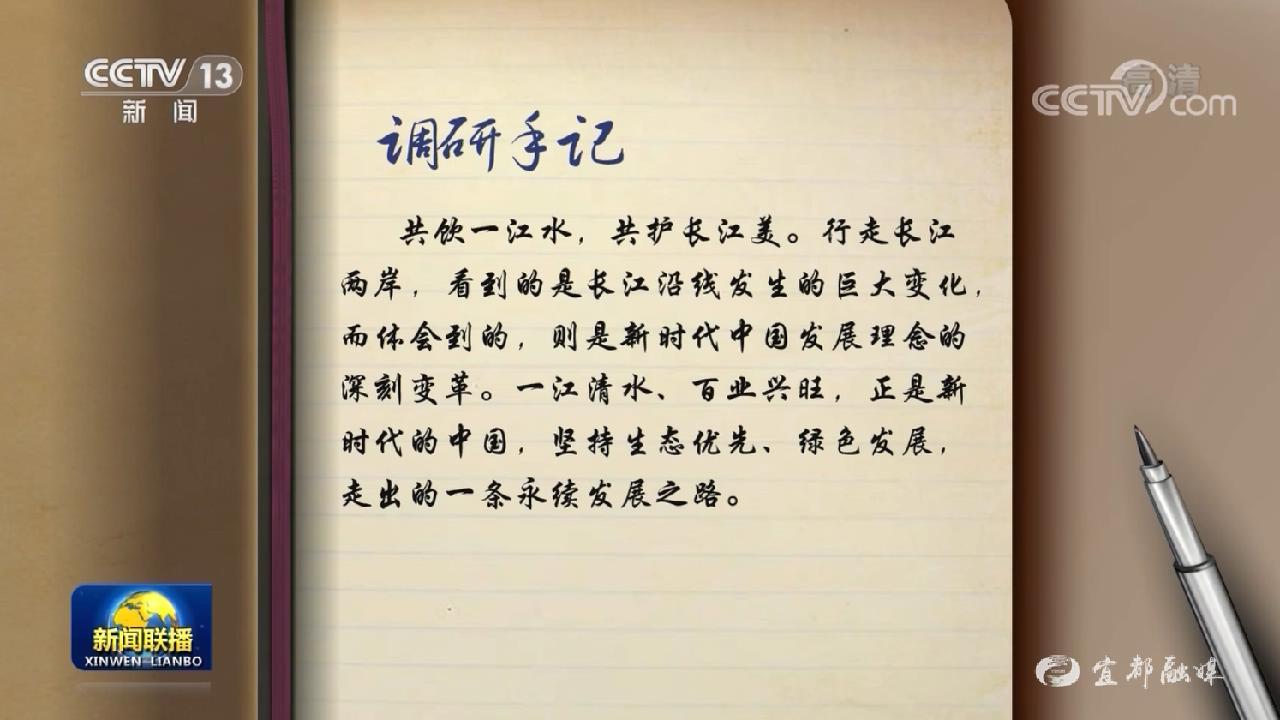 CCTV 13
新闻
高清
CCTV.com
调研手记
共饮一江水，共护长江美。行走长江
两岸，看到的是长江沿线发生的巨大变化，
而体会到的，则是新时代中国发展理念的
深刻变革。一江清水、百业兴旺，正是新
时代的中国，坚持生态优先、绿色发展，
走出的一条永续发展之路。
新闻联播
XINWEN-LIANBO
宜都融媒